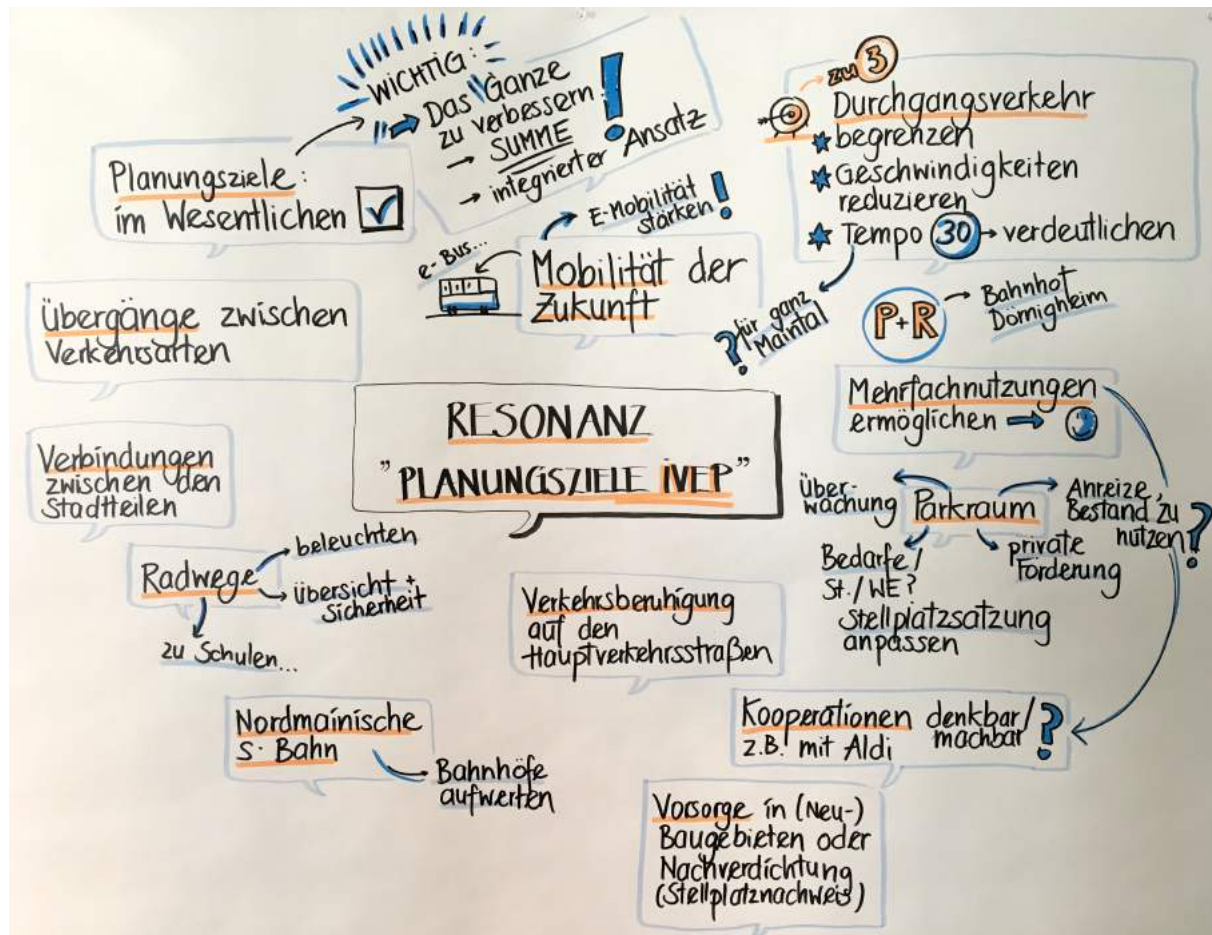 WICHTIG:
Das "Ganze"
zu verbessern!
→ SUMME
→ integrierter Ansatz
Planungsziele:
im Wesentlichen
zu 3
Durchgangsverkehr
begrenzen
Geschwindigkeiten
reduzieren
Tempo 30 → verdeutlichen
für ganz
Maintal
?
E-Mobilität
stärken!
e-Bus...
Mobilität der
Zukunft
P+R
Bahnhof
Dörnigheim
Übergänge zwischen
Verkehrsarten
Mehrfachnutzungen
ermöglichen →
RESONANZ
"PLANUNGSZIELE IVEP"
Verbindungen
zwischen den
Stadtteilen
Über-
wachung
Parkraum
Anreize,
Bestand zu
nutzen?
private
Förderung
Bedarfe/
St./WE?
Stellplatzsatzung
anpassen
Radwege
beleuchten
Übersicht +
Sicherheit
zu Schulen...
Verkehrsberuhigung
auf den
Hauptverkehrsstraßen
Nordmainische
S-Bahn
Bahnhöfe
aufwerten
Kooperationen denkbar/
z.B. mit Aldi machbar?
Vorsorge in (Neu-)
Baugebieten oder
Nachverdichtung
(Stellplatznachweis)